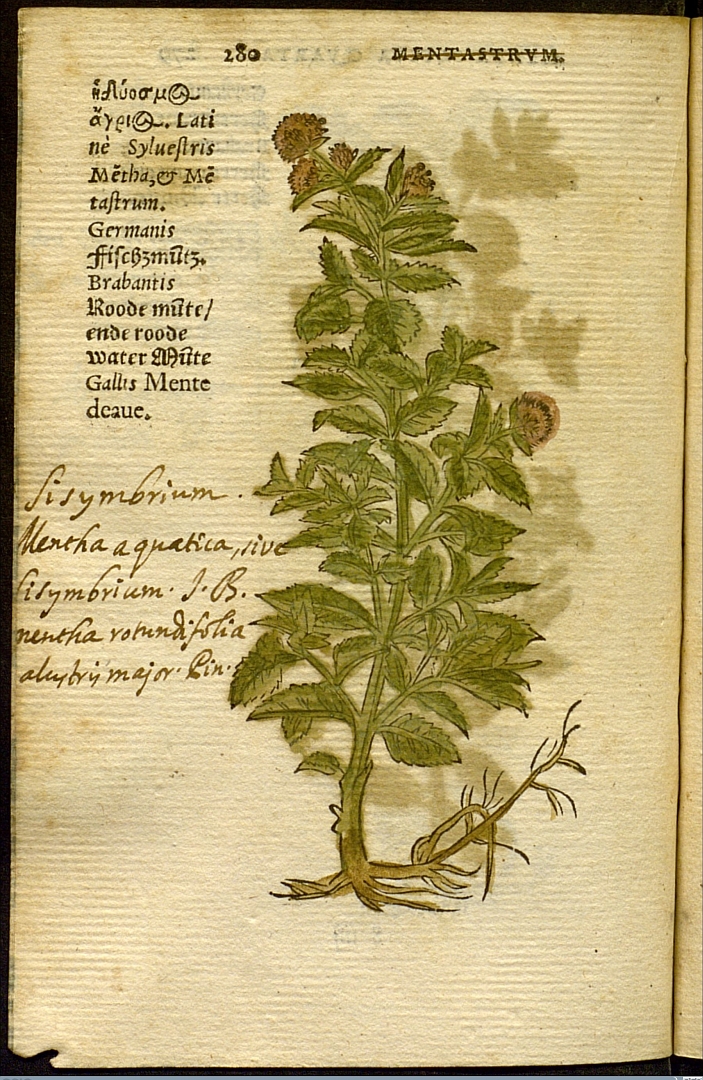 280 MENTASTRVM.
ἡδύοσμος
ἄγριος. Lati
nè Syluestris
Mẽtha, & Mẽ
tastrum.
Germanis
Fischzmũtz.
Brabantis
Roode mũte/
ende roode
water Mũte
Gallis Mente
deaue.
Sisymbrium.
Mentha aquatica, sive
sisymbrium. J. B.
mentha rotundifolia
alustris major. Pin.